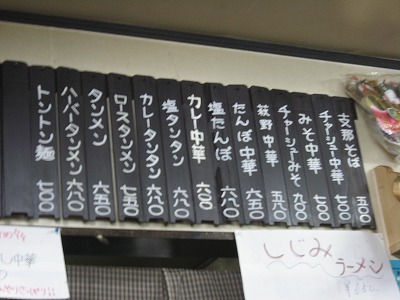 支那そば 五〇〇
チャーシュー中華 七〇〇
みそ中華 六〇〇
チャーシューみそ 九〇〇
荻野中華 五八〇
たんぽ中華 六五〇
塩たんぽ 六八〇
カレー中華 六〇〇
塩タンタン 六八〇
カレータンタン 六八〇
ロースタンメン 七五〇
タンメン 六五〇
ハバータンメン 六八〇
トントン麺 七〇〇
しじみ
ラーメン
¥650
し中華